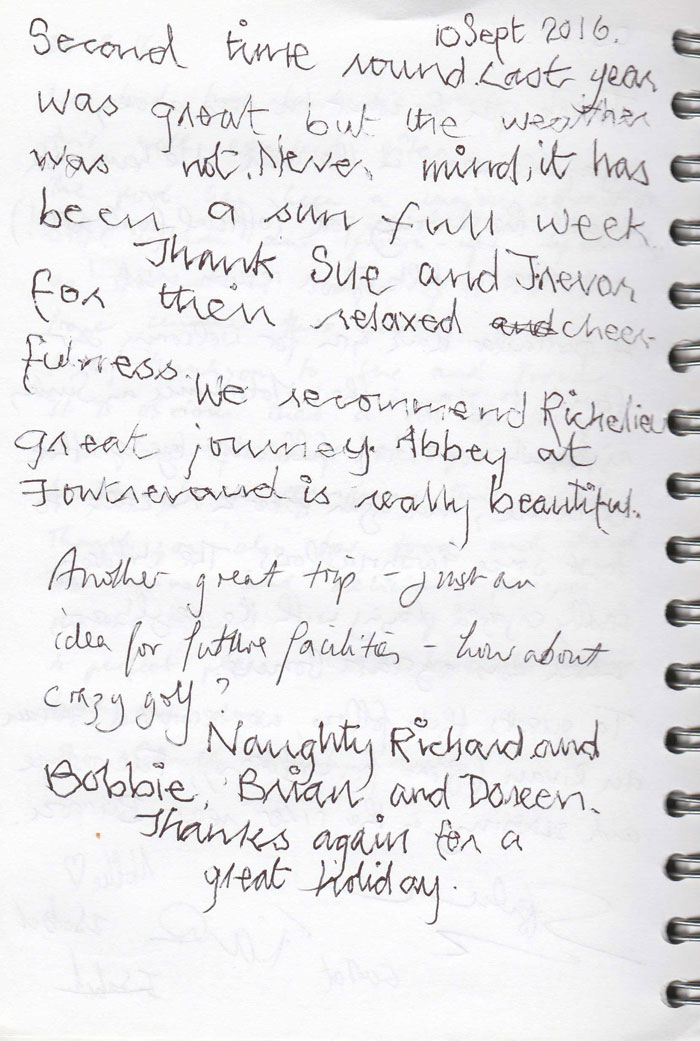 10 Sept 2016.
Second time round. Last year
was great but the weather
was not. Never mind, it has
been a sun full week.
Thank Sue and Trevor
for their relaxed and cheer
fulness. We recommend Richelieu
great journey. Abbey at
is really beautiful.
Another great trip – just an
idea for future facilities – how about
crazy golf?
Naughty Richard and
Bobbie, Brian and Doreen.
Thanks again for a
great holiday.